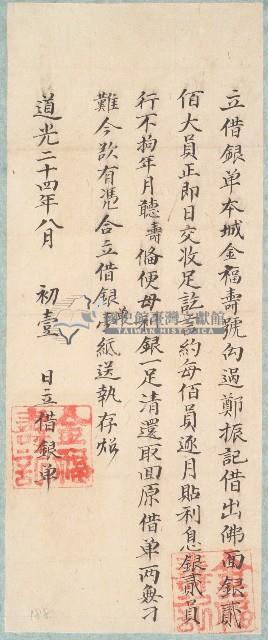 立借銀单本城金福壽號勾過鄭振記借出佛面銀貳
佰大員正即日交收足訖言約每佰員逐月貼利息銀貳員
行不拘年月聽壽俻便母利銀足清還取囬原借单两無刁
難今欲有憑合立借銀单紙送執存炤
道光二十四年八月 初壹 日立借銀单
國史館臺灣文獻館
TAIWAN HISTORICA
188